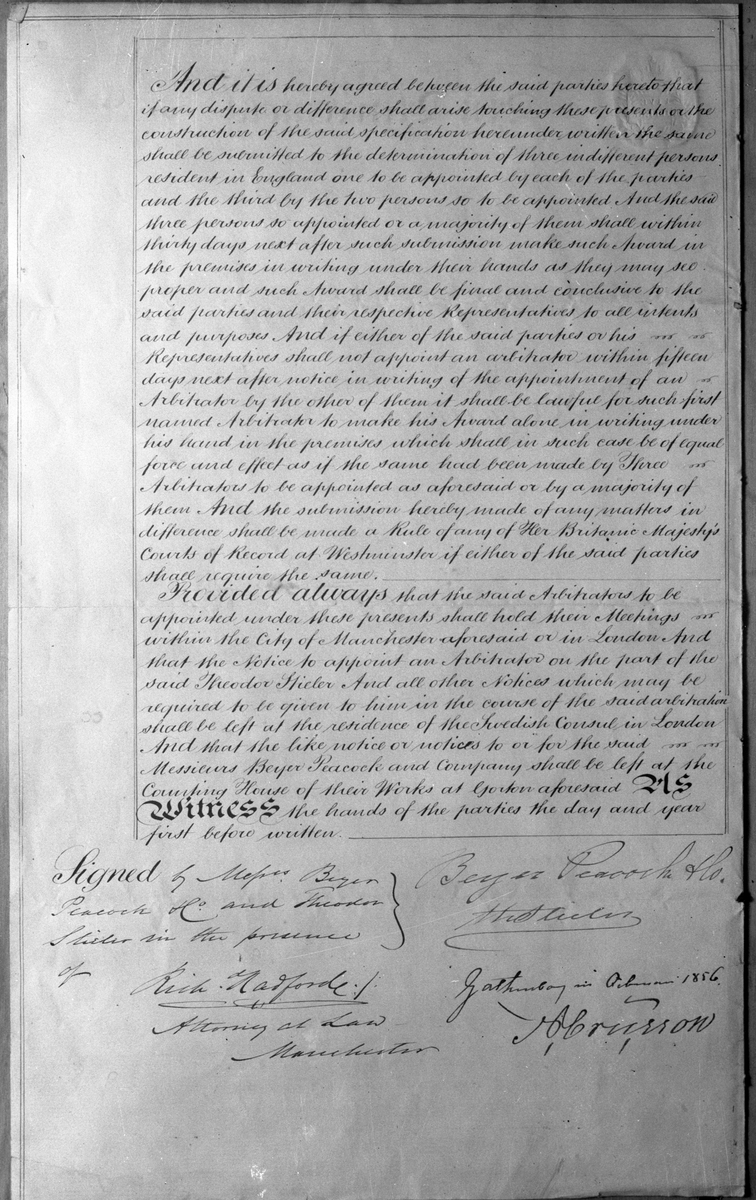 And it is hereby agreed between the said parties hereto that
if any dispute or difference shall arise touching these presents or the
construction of the said specification hereunder written the same
shall be submitted to the determination of three indifferent persons
resident in England one to be appointed by each of the parties
and the third by the two persons so to be appointed And the said
three persons so appointed or a majority of them shall within
thirty days next after such submission make such Award in
the premises in writing under their hands as they may see
proper and such Award shall be final and conclusive to the
said parties and their respective Representatives to all intents
and purposes And if either of the said parties or his
Representatives shall not appoint an arbitrator within fifteen
days next after notice in writing of the appointment of an
Arbitrator by the other of them it shall be lawful for such first
named Arbitrator to make his Award alone in writing under
his hand in the premises which shall in such case be of equal
force and effect as if the same had been made by Three
Arbitrators to be appointed as aforesaid or by a majority of
them And the submission hereby made of any matters in
difference shall be made a Rule of any of Her Britanic Majesty's
Courts of Record at Westminster if either of the said parties
shall require the same.
Provided always that the said Arbitrators to be
appointed under these presents shall hold their Meetings
within the City of Manchester aforesaid or in London And
that the Notice to appoint an Arbitrator on the part of the
said Theodor Stieler And all other Notices which may be
required to be given to him in the course of the said arbitration
shall be left at the residence of the Swedish Consul in London
And that the like notice or notices to or for the said
Messieurs Beyer Peacock and Company shall be left at the
Counting House of their Works at Gorton aforesaid As
Witness the hands of the parties the day and year
first before written.
Signed by Messrs. Beyer
Peacock & Co. and Theodor
Stieler in the presence
of
Beyer Peacock & Co.
Th Stieler
Rich. Radforde
Attorney at Law
Manchester
in 1856.